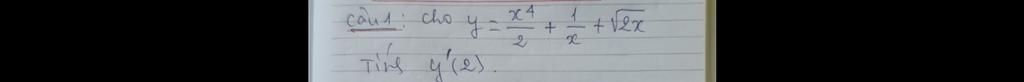 Câu 1: Cho y = x^4/2 + 1/x + √2x
Tính y'(2).